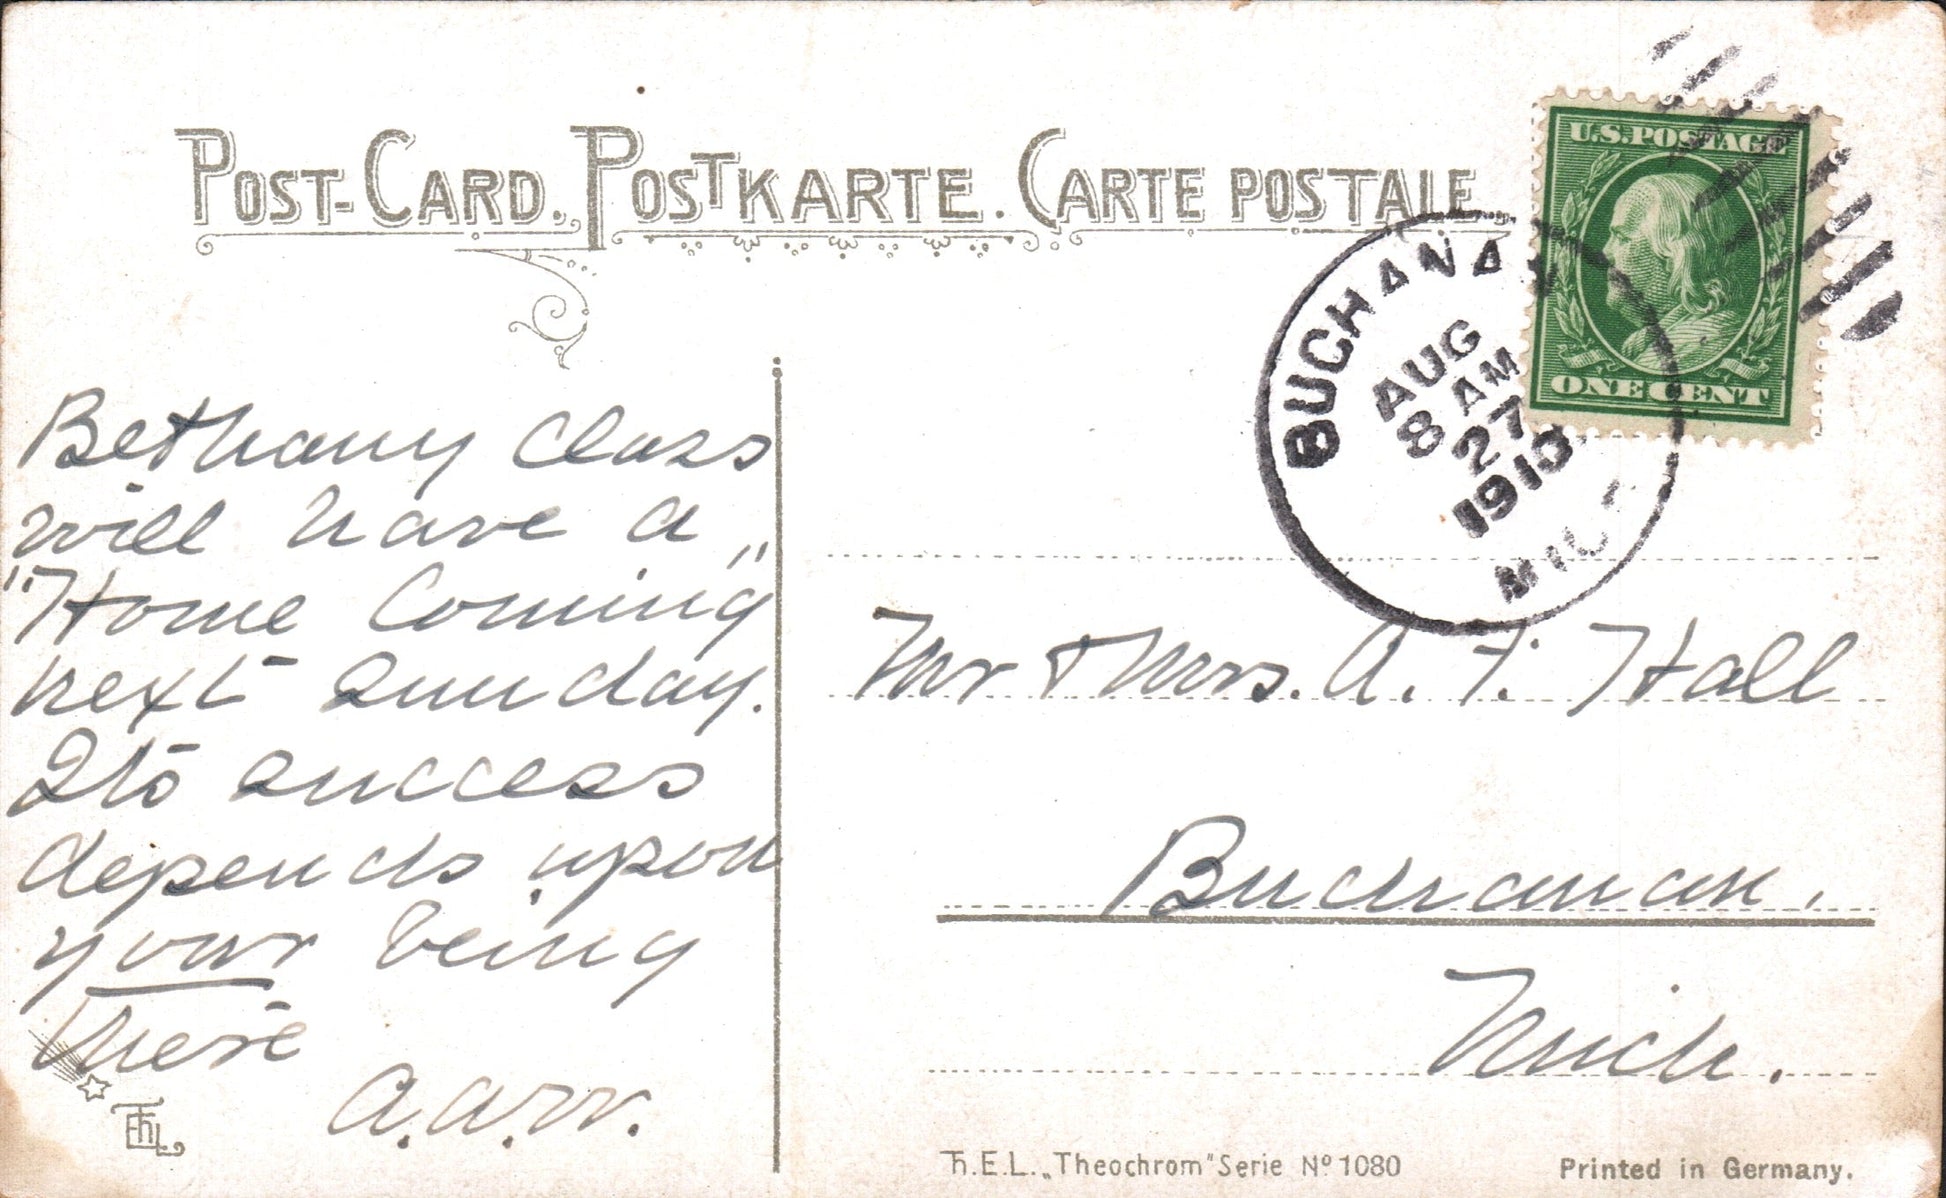 POST-CARD. POSTKARTE. CARTE POSTALE.
U.S. POSTAGE
ONE CENT
BUCHANAN
AUG
8 AM
27
1910
MICH
Bethany class
will have a
"Home Coming"
next Sunday.
Its success
depends upon
your being
there
Mr & Mrs. A. F. Hall
Buchanan.
Mich.
Th.E.L. „Theochrom" Serie Nº 1080
Printed in Germany.